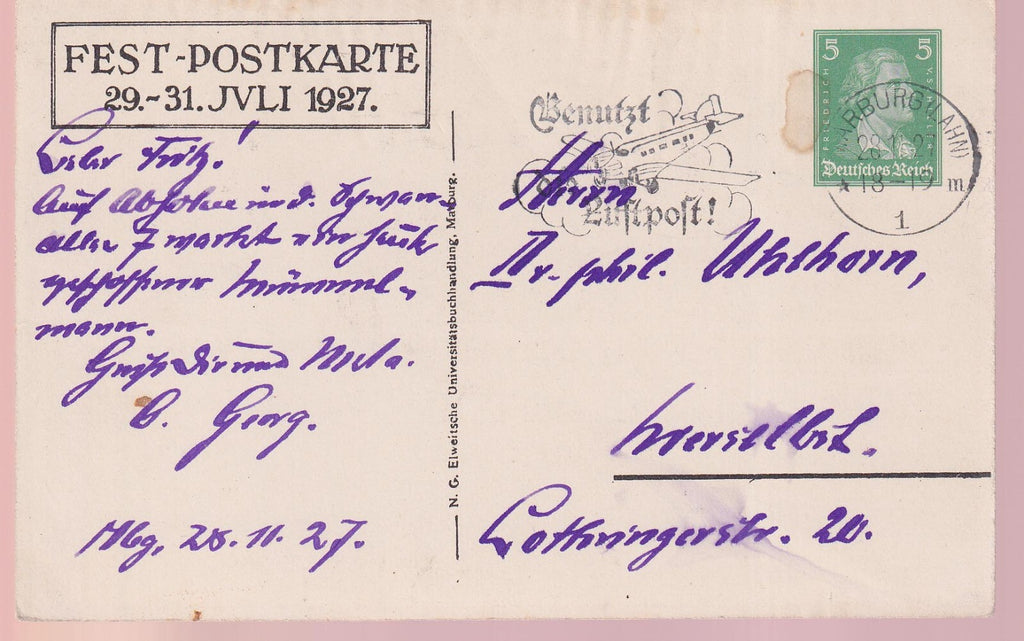 FEST-POSTKARTE
29.-31. JVLI 1927.
Lieber Fritz!
Auf Abholen in d. Schwan-
allee 7 wartet ein frisch
geschossener Mümmel-
mann.
Gruß Dir und Meta.
G. Georg.
Mbg, 28. 11. 27.
N. G. Elwertsche Universitätsbuchhandlung, Marburg.
Benutzt
Luftpost!
5 5
FRIEDRICH V. SCHILLER
Deutsches Reich
MARBURG (LAHN)
28.11.27
★ 18-19 m
1
Herrn
Dr. phil. Uhlhorn,
hierselbst.
Lothringerstr. 20.